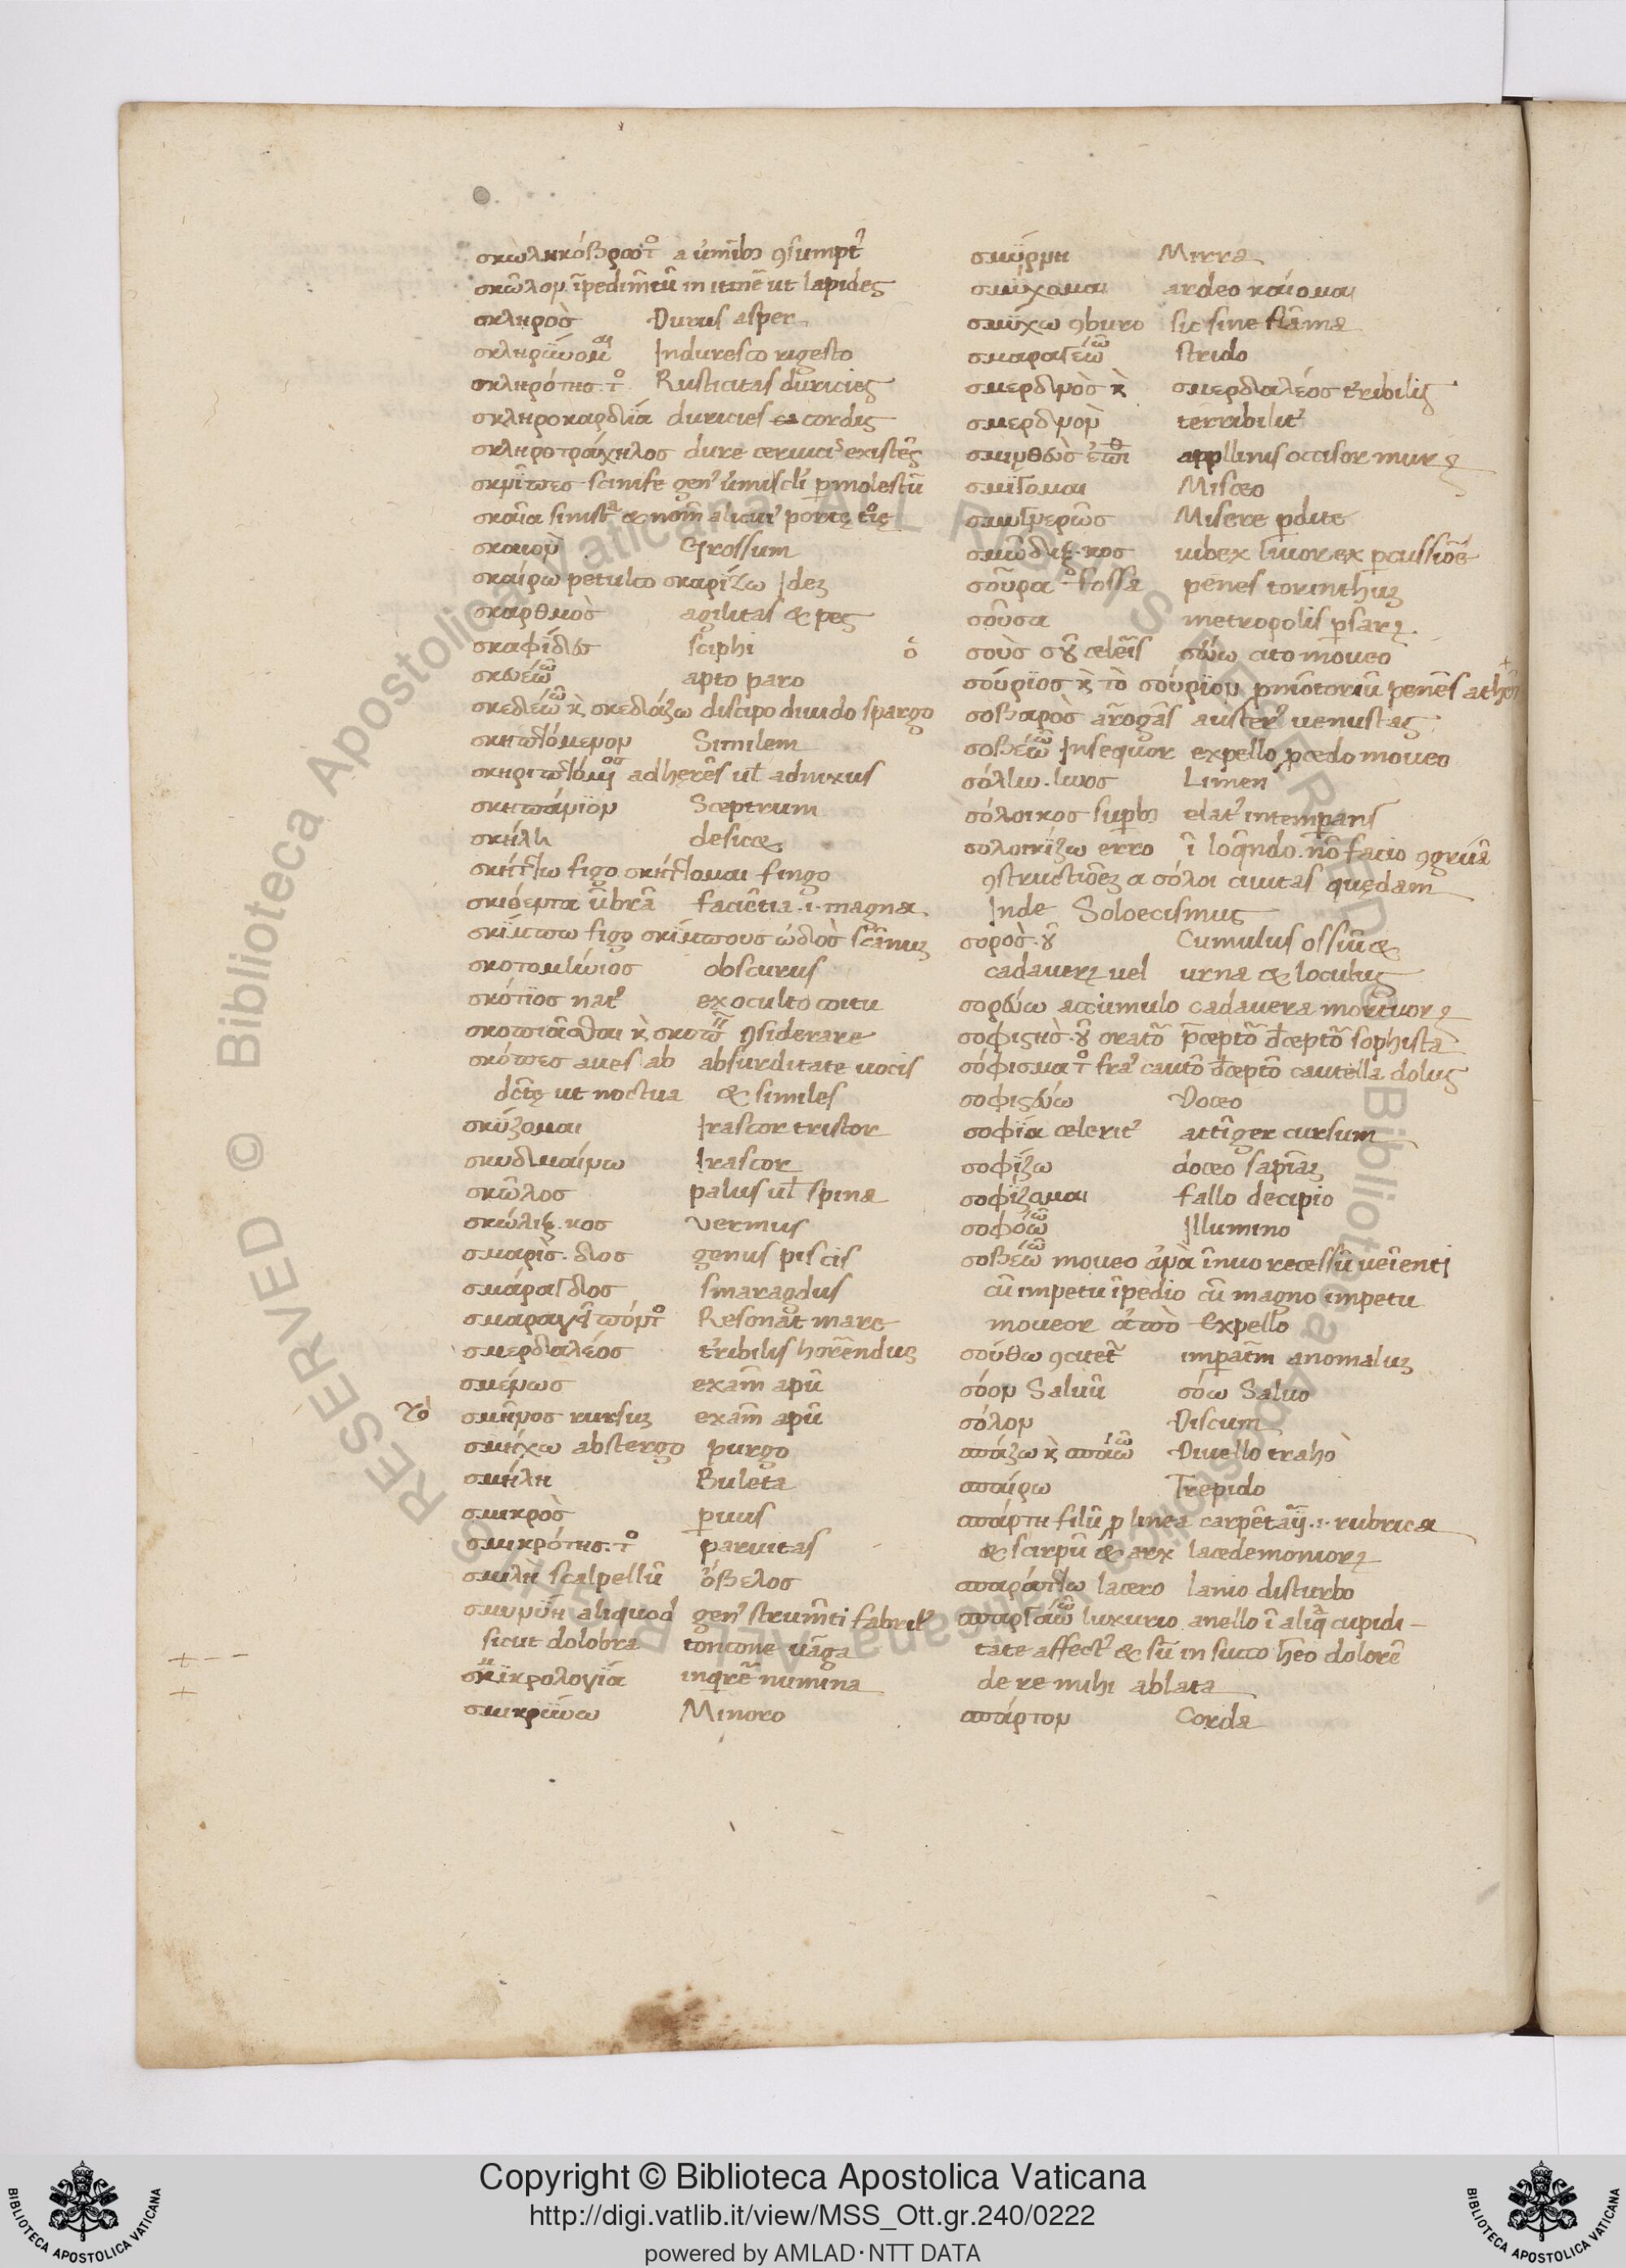 σκωληκόβρωτο a v̓mib9 ꝯsumpt9
σκῶλον ī̄pedim̄tū in itinē ut lapides
σκληρὸς Durus asper
σκληρύνομαι Induresco rigesto
σκληρότης. το Rusticitas duricies
σκληροκαρδία duricies cordis
σκληροτράχηλος dure ceruicis existēs
σκνῖπες scinife
σκαιὰ
σκαιὸν Grossum
σκαίρω petulco σκαρίζω Idez
σκαρθμὸς agilitas & pes
σκαφίδες sciphi
σκευέω apto paro
σκεδέω κ̀ σκεδάζω discipo diuido spargo
σκηπτόμενον Similem
σκηριπτόμενος adherēs ul̄ adnixus
σκηπάνϊον Sceptrum
σκήλη desicce
σκήπτω figo σκήπτομαι fingo
σκιόεντα ūbrā faciētia .i. magna
σκίμπω figo σκίμπους ὠδὸς scānuz
σκοτομήνιος obscurus
σκότϊος nat9 ex oculto coitu
σκοπιᾶσθαι κ̀ ꝯsiderare
σκόπες aues ab absurditate uocis
dc̄te ut noctua & similes
σκύζομαι Irascor tristor
σκυδμαίνω Irascor
σκῶλος palus ul̄ spina
σκώληξ.κος vermus
σμαρὶς.διος genus piscis
σμάραγδος smaragdus
σμαραγεῖ πόντο Resonat mare
σμερδαλέος t̓ribilis horrēndus
σμένως exam̄ apū
το σμῆνος rursuz exam̄ apū
σμήχω abstergo purgo
σμήλη Buleta
σμικρὸς paruus
σμικρότης.το paruitas
σμιλὴ scalpellū ὄβελος
σμυνύη aliquod gen9 strum̄ti fabril9
sicut dolobra
σμϊκρολογία
σμικρύνω Minoro
σμύρνη Mirra
σμύχομαι ardeo καίομαι
σμύχω ꝯburo sic sine flāma
σμαραγέω strido
σμερδνὸς κ̀ σμερδαλέος t̓ribilis
σμερδνὸν terribilit̓
σμινθεὺς appllinis occisor mur
σμίγομαι Misceo
σμυγερῶς Misere p̱dite
σμῶδιξ.κος uibex liuor ex p̱cussiōe
σοῦρα fossa penes corinthuz
σοῦσα metropolis p̱sarꝝ.
ὁ σοὺς σοῦ celēis σώω cito moueo
σούρϊος κ̀ τὸ σούρϊον p̱mōtoriū penēs athen
σοβαρὸς arogās auster9 uenustas
σοβέω Insequor expello p̱cedo moueo
σόλην.ηνος Limen
σόλοικος sup̱b9 elat9 intemp̱ans
σολοικίζω erro ī loq̄ndo. nō facio ꝯgruā
ꝯstructiōez a σόλοι ciuitas quędam
Inde Soloecismus
σορὸς.οῦ Cumulus ossiū &
cadauerꝝ uel urna & loculus
σορεύω accumulo cadauera mortuorꝝ
σοφιστὴς.οῦ orator p̄ceptor deceptor sophista
σόφισμα το fra9 cauto decepto cautella dolus
σοφιστεύω Doceo
σοφία celerit̓ attiger cursum
σοφίζω doceo sapiāz
σοφίζομαι fallo decipio
σοφόω Illumino
σοβέω moueo recessū ueienti
cū impetu īpedio cū magno impetu
moueor ἀπὸ Expello
σούθω imp̱atm anomaluz
σόον Saluū σόω Saluo
σόλον Discum
σπάζω κ̀ σπάω Diuello traho
σπαίρω Trepido
σπάρτη filū p̱ linea carpētarij .i. rubrica
& scirpū & arx lacedemoniorꝝ
σπαράττω lacero lanio disturbo
σπαργάω luxurio anello ī aliqa cupidi-
tate affect9 & sū in succo hēo dolorē
de re mihi ablata
σπάρτον Corda
RESERVED © Biblioteca Apostolica Vaticana ALL RIGHTS RESERVED © Biblioteca Apostolica Vaticana ALL RIGHTS
Copyright © Biblioteca Apostolica Vaticana
http://digi.vatlib.it/view/MSS_Ott.gr.240/0222
powered by AMLAD·NTT DATA
BIBLIOTECA APOSTOLICA VATICANA
BIBLIOTECA APOSTOLICA VATICANA